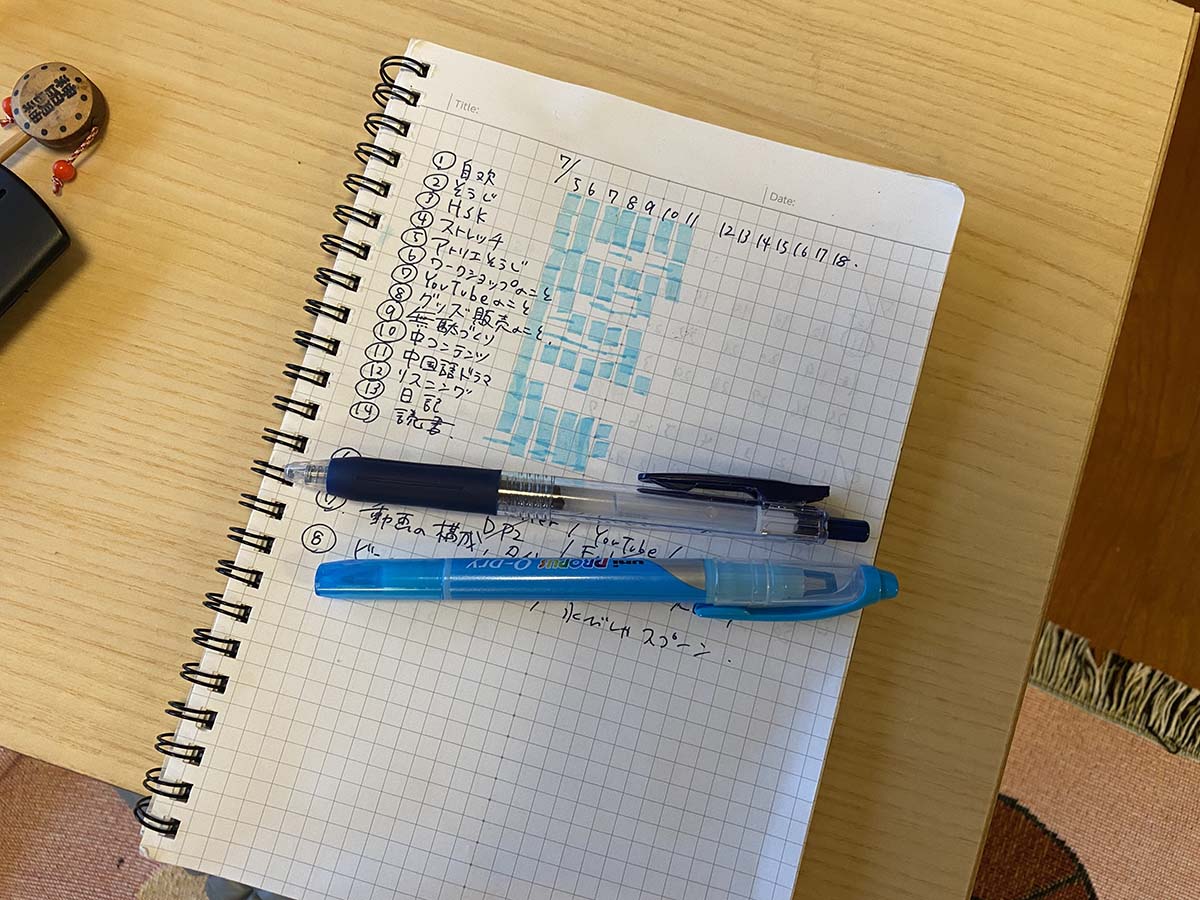 Title:
Date:
7/
5 6 7 8 9 10 11 12 13 14 15 16 17 18.
① 自炊
② そうじ
③ HSK
④ ストレッチ
⑤ アトリエそうじ
⑥ ワークショップのこと
⑦ YouTubeのこと
⑧ グッズ販売のこと.
⑨ 無駄づくり
⑩ 中コンテンツ
⑪ 中国語ドラマ
⑫ リスニング
⑬ 日記
⑭ 読書.
YouTube /
動画の構成
⑧
スプーン.
uni PROPUS Q-DRY